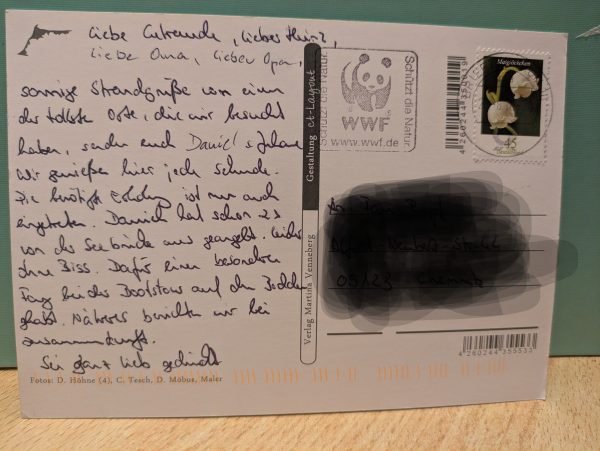 Liebe Gertraude, lieber Heinz,
Liebe Oma, lieber Opa,
sonnige Strandgrüße von einem
der tollsten Orte, die wir besucht
haben, senden euch Daniel &
Wir genießen hier jede Sekunde.
Die benötigte Erholung ist nun auch
eingetreten. Daniel hat schon 2x
von der Seebrücke aus geangelt. Leider
ohne Biss. Dafür einen besonderen
Fang bei der Bootstour auf den Bodden
gehabt. Näheres berichten wir bei
Zusammenkunft.
Sei ganz lieb gedrückt
Fotos: D. Höhne (4), C. Tesch, D. Möbus, Maler
Verlag Martina Venneberg
Gestaltung ct-Layout
WWF
Schützt die Natur
www.wwf.de
4260244355019
Maiglöckchen
45
09123 Chemnitz
4260244355533